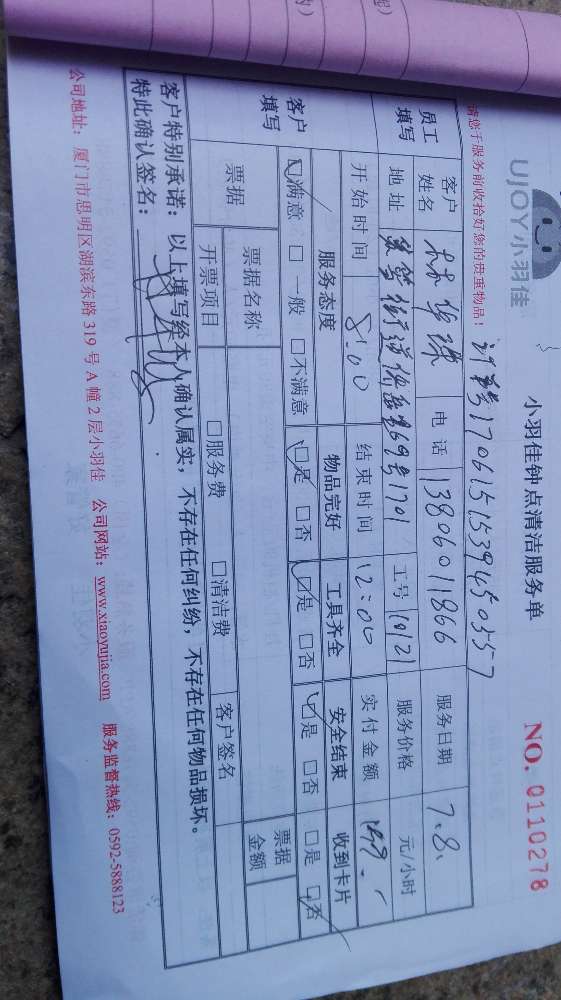 UJOY小羽佳
小羽佳钟点清洁服务单
NO. 0110278
请您于服务前收拾好您的贵重物品！
订单号1706151539450557
员工填写
客户姓名 林华珠 电话 13806011866 服务日期 7.8.
地址 69号1701 工号 10121 服务价格 元/小时
开始时间 8:00 结束时间 12:00 实付金额 149.-
客户填写
服务态度 物品完好 工具齐全 安全结束 收到卡片
☑满意 □一般 □不满意 ☑是 □否 ☑是 □否 ☑是 □否 □是 ☑否
票据 票据名称 票据金额
开票项目 □服务费 □清洁费 客户签名
客户特别承诺：以上填写经本人确认属实，不存在任何纠纷，不存在任何物品损坏。
特此确认签名：
公司地址：厦门市思明区湖滨东路319号A幢2层小羽佳 公司网站：www.xiaoyujia.com 服务监督热线：0592-5888123